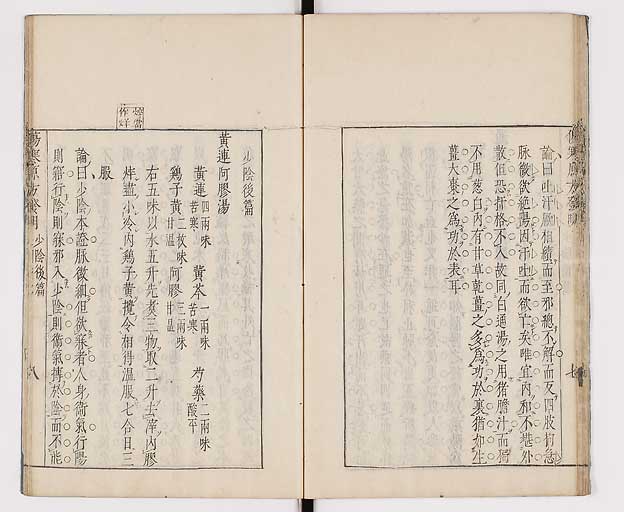 論曰吐汗胸相續而至邪總不解而反四肢拘急
脉微欲絶陽因汗吐而欲亡矣唯宜内和不堪外
散但恐扞格不入故同白通湯之用猪膽汁而獨
不用葱白内有甘草乾薑之多為功於裏猶如生
薑大棗之為功於表耳
七
少陰後篇
黃連阿膠湯
黃連四兩味苦寒 黃芩一兩味苦寒 芍藥二兩味酸平
鷄子黃二枚味甘温 阿膠三兩味甘温
右五味以水五升先煑三物取二升去滓内膠
烊盡小冷内鷄子黃攪令相得温服七合日三
服
論曰少陰本證脉微細但欲寐者人身衛氣行陽
則寤行陰則寐邪入少陰則衛氣摶於陰而不能
傷寒 方發明 少陰後篇 八